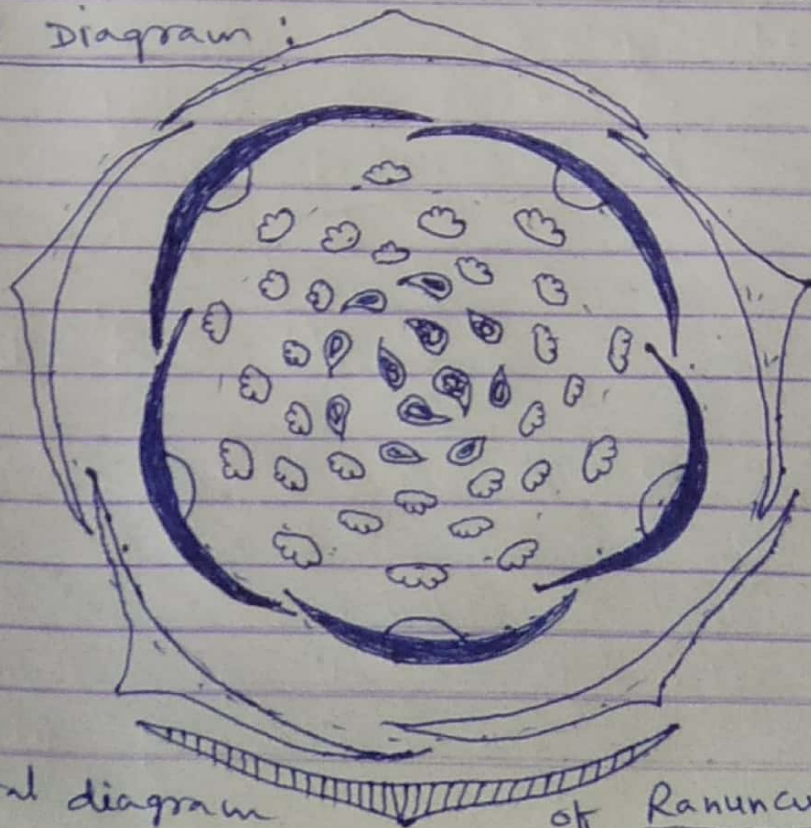 Diagram:
al diagram of Ranuncu